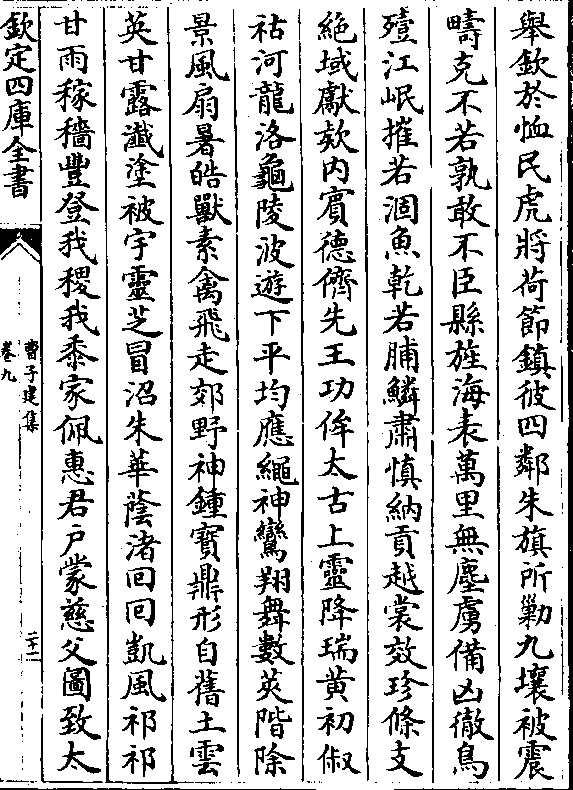 舉欽於恤民虎將荷節鎮彼四鄰朱旗所勦九壤被震
疇克不若孰敢不臣縣旌海表萬里無塵虜備凶徹鳥
殪江岷摧若涸魚乾若脯鱗肅慎納貢越裳效珍條支
絶域獻欵内賓德儕先王功侔太古上靈降瑞黄初俶
祜河龍洛龜陵波遊下平均應繩神鸞翔舞數莢階除
景風扇暑皓獸素禽飛走郊野神鍾寶鼎形自舊土雲
英甘露瀸塗被宇靈芝冒沼朱華蔭渚回回凱風祁祁
甘雨稼穡豐登我稷我黍家佩惠君户蒙慈父圖致太
欽定四庫全書
曹子建集
卷九
二十二